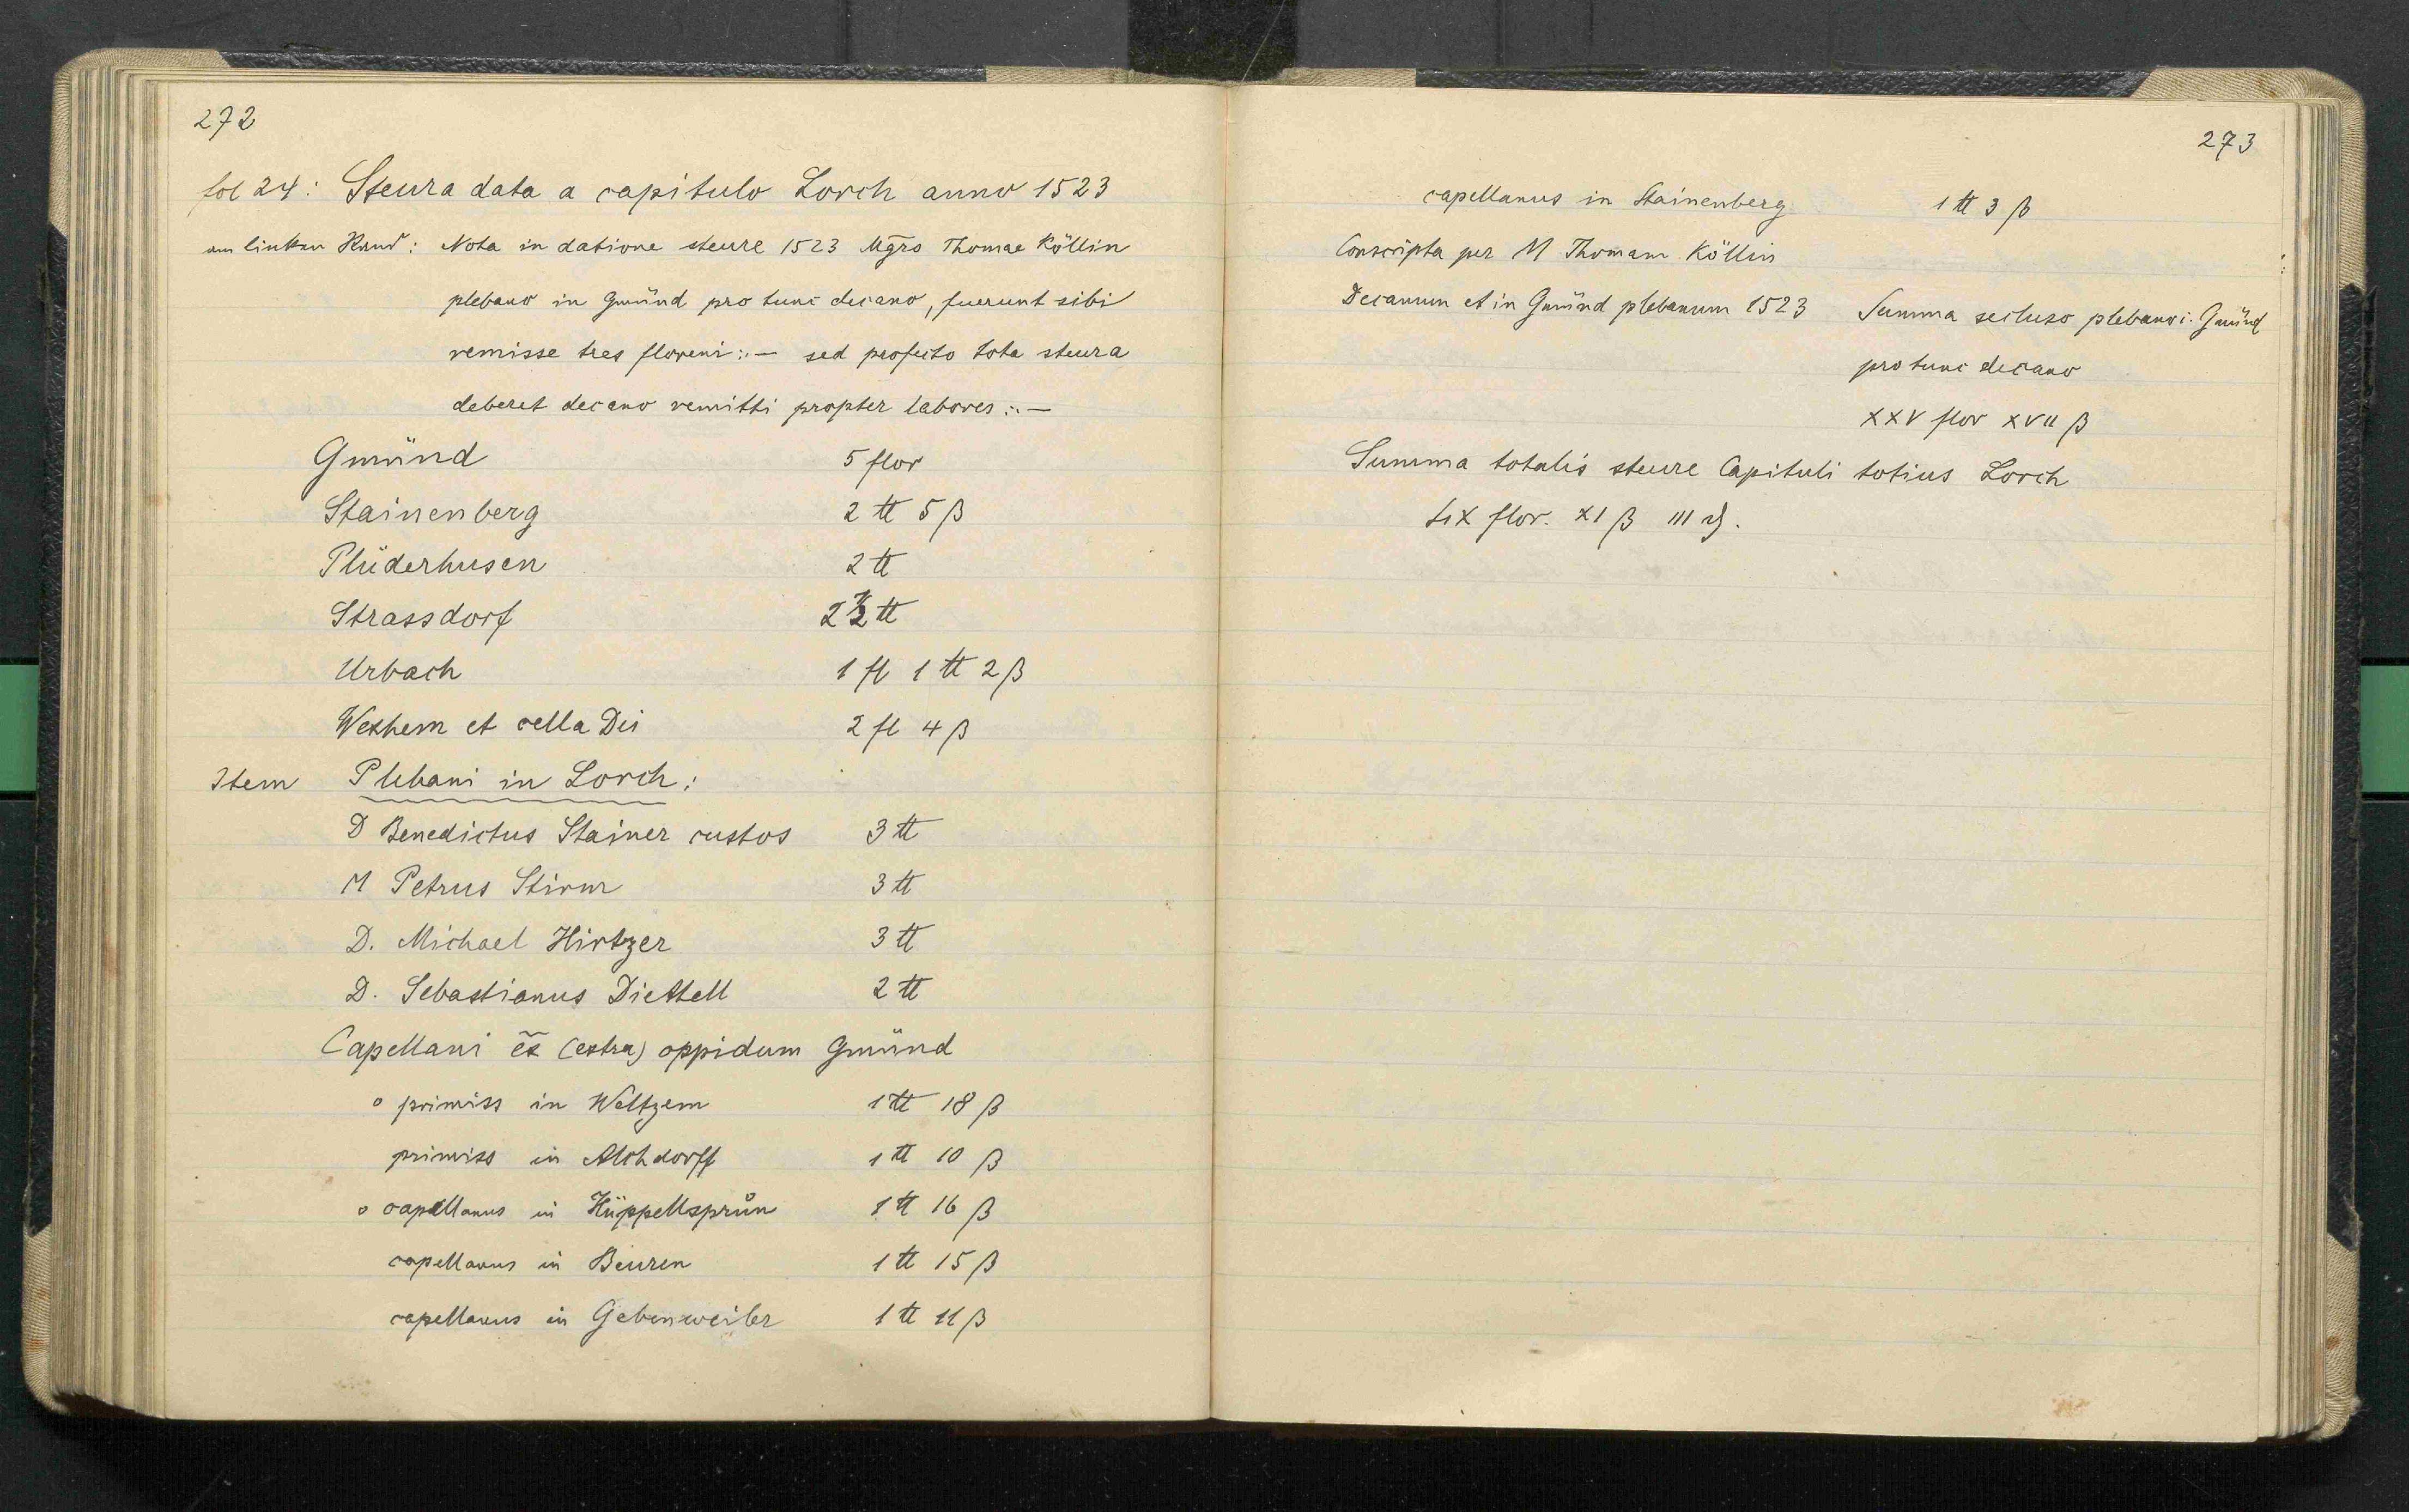 272
fol 24: Steura data a capitulo Lorch anno 1523
am linken Rand: Nota in datione steure 1523 Mgro Thomae Köllin
plebano in Gmünd pro tunc decano, fuerunt sibi
remisse tres floreni :.— sed profecto tota steura
deberet decano remitti propter labores :.—
Gmünd 5 flor
Stainenberg 2 ℔ 5 ß
Plüderhusen 2 ℔
Strassdorf 2½ ℔
Urbach 1 fl 1 ℔ 2 ß
Wexhem et cella Dei 2 fl 4 ß
Item Plebani in Lorch:
D Benedictus Stainer custos 3 ℔
M Petrus Stirm 3 ℔
D. Michael Hirtzer 3 ℔
D. Sebastianus Diettell 2 ℔
Capellani ex̃ (extra) oppidum Gmünd
° primiss in Weltzem 1 ℔ 18 ß
primiss in Alchdorff 1 ℔ 10 ß
° capellanus in Hüppellsprůn 1 ℔ 16 ß
capellanus in Beuren 1 ℔ 15 ß
capellanus in Gebenweiler 1 ℔ 11 ß
273
capellanus in Stainenberg 1 ℔ 3 ß
Conscripta per M Thomam Köllin
Decanum et in Gmünd plebanum 1523 Summa secluso plebano i. Gmünd
pro tunc decano
XXV flor XVII ß
Summa totalis steure Capituli totius Lorch
LIX flor. XI ß III ₰.